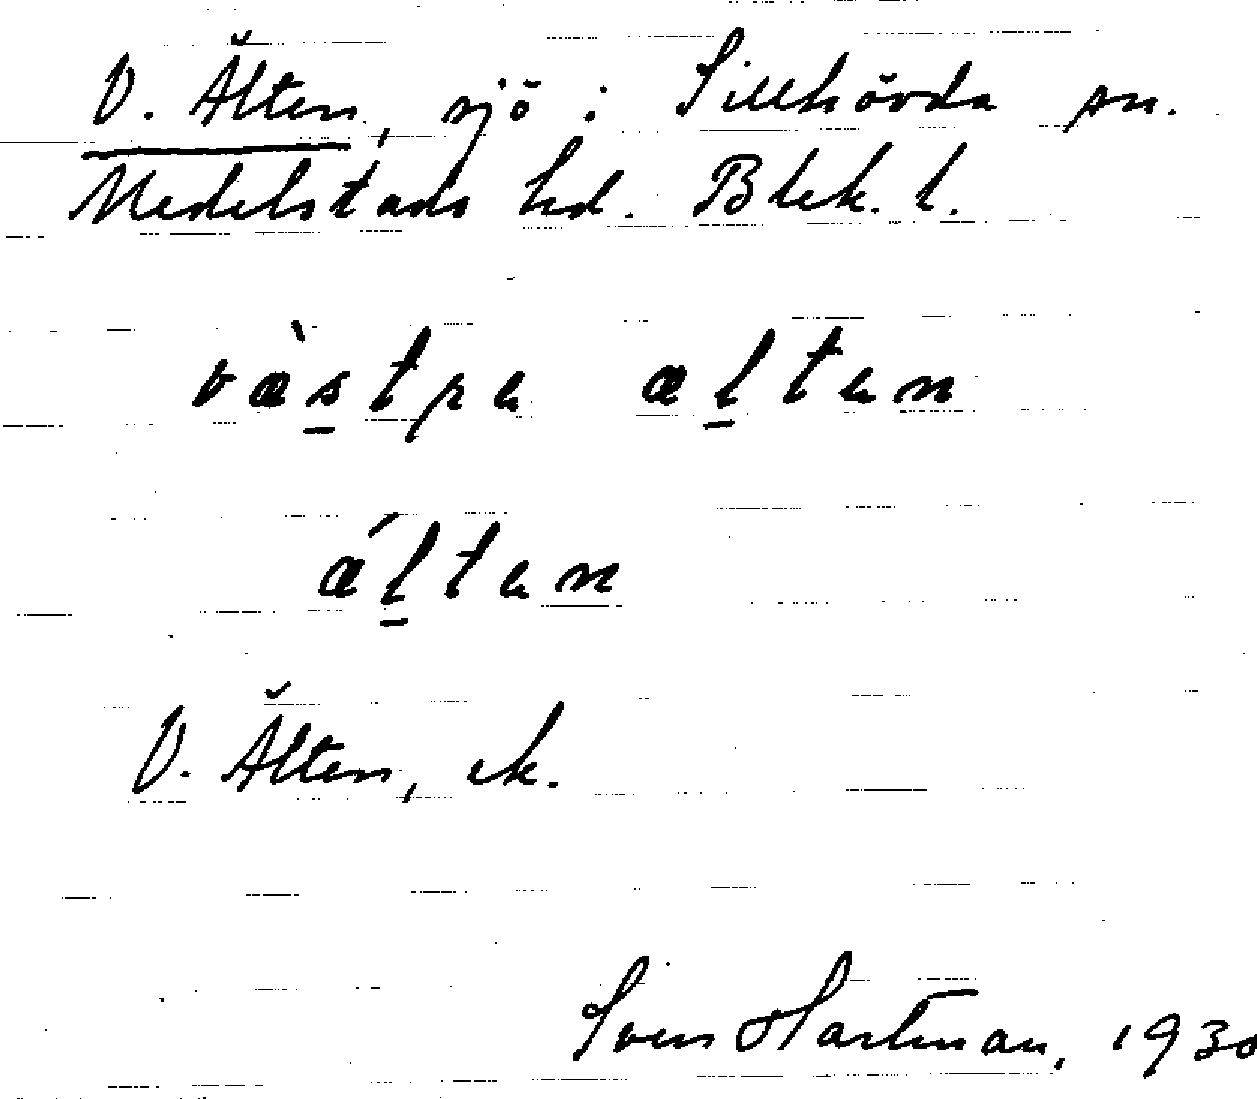 V. Älten, sjö i Sillhövda sn.
Medelstads hd. Blek. l.
væ̀s̱tra æḻtan
ǽḻtan
V. Älten, ek.
Sven Hartman, 1930